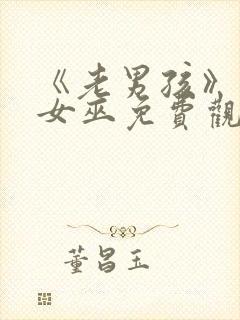 《老男孩》
女巫免費觀
董昌玉